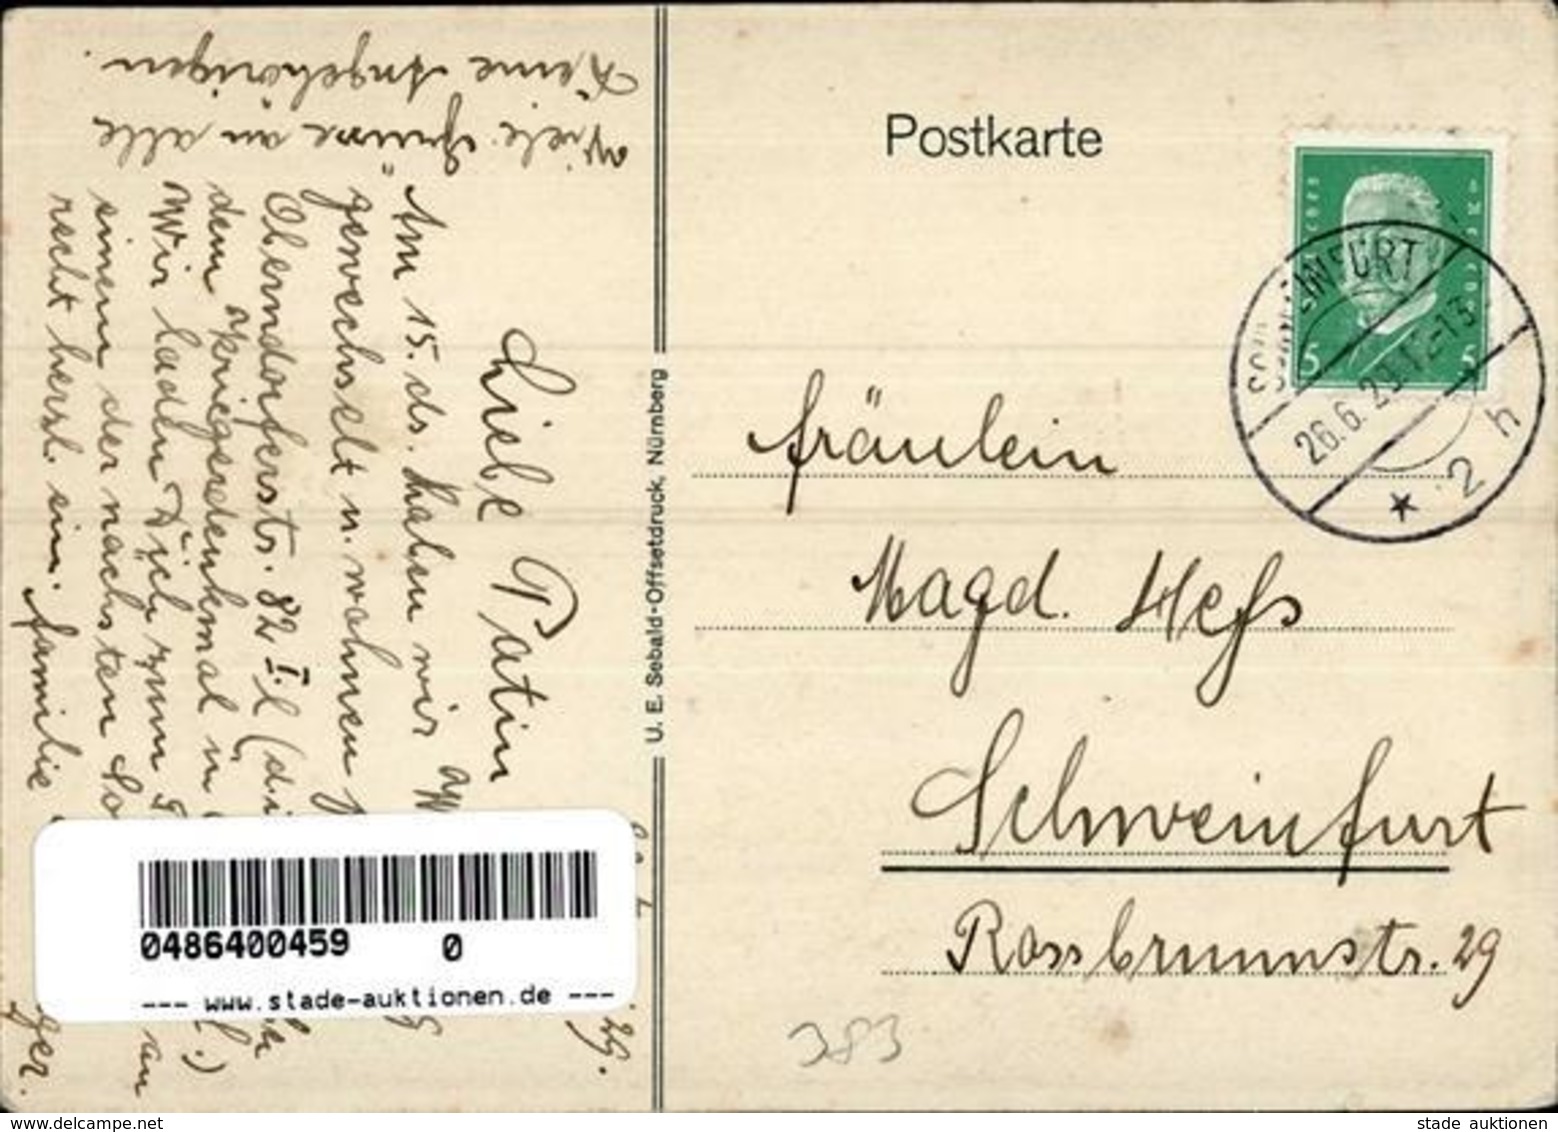 Postkarte
SCHWEINFURT
26.6.29.12-13
* 2 h
5 5
Fräulein
Magd. Hess
Schweinfurt
Rossbrunnstr. 29
383
U. E. Sebald-Offsetdruck, Nürnberg
29.
Liebe Patin
Am 15. ds. haben wir
gewechselt u. wohnen
Oberndorferstr. 82 I. l (di
dem Kriegerdenkmal in
Wir laden Dich zum
einem der nächsten So an
recht herzl. ein. Familie
ger.
Viele Grüsse an alle
Deine Angehörigen.
0486400459 0
--- www.stade-auktionen.de ---
www.delcampe.net
stade auktionen